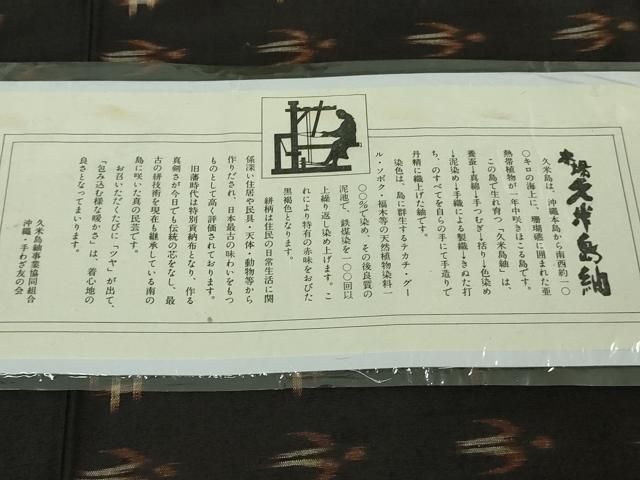 本場久米島紬
久米島は、沖縄本島から南西約一〇
〇キロの海上に、珊瑚礁に囲まれた亜
熱帯植物が一年中咲きほこる島です。
この島で生れ育つ「久米島紬」は、
養蚕→真綿→手つむぎ→括り→色染め
→泥染め→手織による製織→きぬた打
ち、のすべてを自らの手にて手造りで
丹精に織上げた紬です。
染色は、島に群生するテカチ・グー
ル・ソボク・福木等の天然植物染料
〇〇％で染め、その後良質の
泥池で、鉄媒染を一〇〇回以
上繰り返し染め上げます。こ
れにより特有の赤味をおびた
黒褐色となります。
絣柄は住民の日常生活に関
係深い住居や民具・天体・動物等から
作りだされ、日本最古の味わいをもつ
ものとして高く評価されております。
旧藩時代は特別貢納布となり、作る
真剣さが今日でも伝統の芯をなし、最
古の絣技術を現在も継承している南の
島に咲いた真の民芸です。
お召いただくたびに「ツヤ」が出て、
「包み込む様な暖かさ」は、着心地の
良さとなってまいります。
久米島紬事業協同組合
沖縄・手わざ友の会